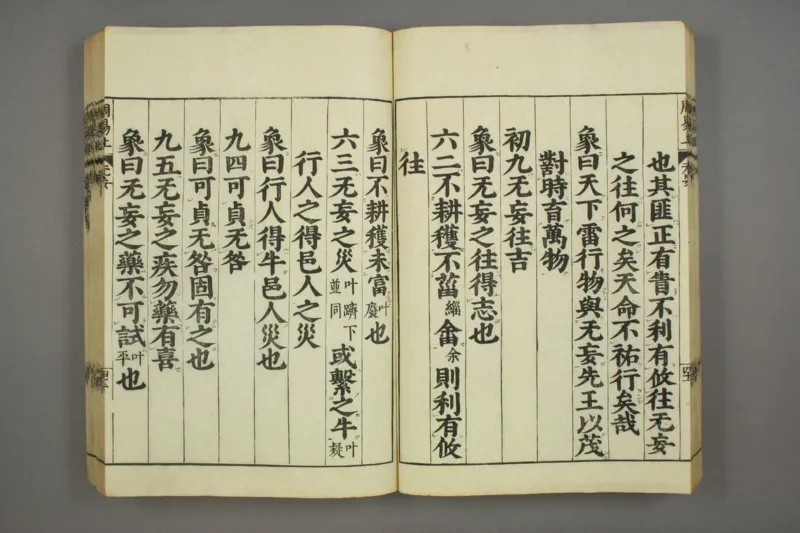 也其匪正有眚不利有攸往无妄
之往何之矣天命不祐行矣哉
象曰天下雷行物與无妄先王以茂
對時育萬物
初九无妄往吉
象曰无妄之往得志也
六二不耕穫不菑緇畬余則利有攸
往
象曰不耕穫未富叶廢也
六三无妄之災叶躋下並同或繫之牛叶疑
行人之得邑人之災
象曰行人得牛邑人災也
九四可貞无咎
象曰可貞无咎固有之也
九五无妄之疾勿藥有喜
象曰无妄之藥不可試叶平也
周易上